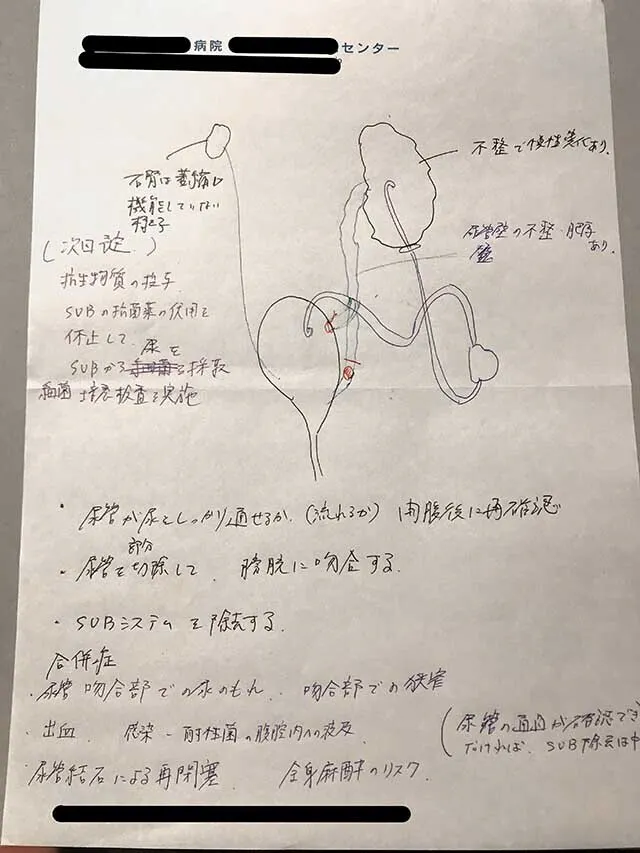 病院 センター
不整で慢性変化あり.
右腎は萎縮し
機能していない
様子
尿管壁の不整・肥厚
あり.
(次回迄.)
抗生物質の投与.
SUBの抗菌薬の使用を
休止して.
尿を
SUBから 採取
細菌培養検査を実施
・尿管が尿をしっかり通せるか. (流れるか) 開腹後に再確認
部分
・尿管を切除して. 膀胱に吻合する.
・SUBシステムを除去する.
合併症
・尿管吻合部での尿のもれ. 吻合部での狭窄
・出血. 感染-耐性菌の腹腔内への波及
(尿管の通過が確認でき
なければ. SUB除去は中
尿管結石による再閉塞 全身麻酔のリスク.